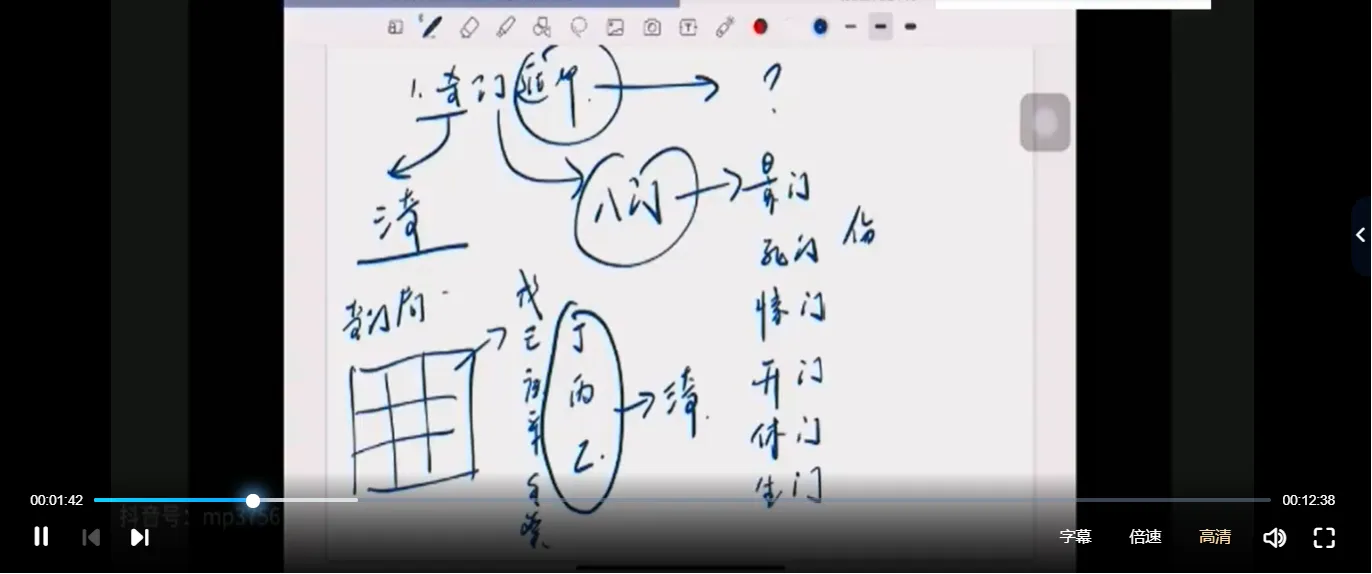 1. 奇门遁甲. → ?
三奇
八门 → 景门
死门 伤
惊门
开门
休门
生门
奇门局
戊
己
庚
辛
壬
癸
丁
丙
乙.
→ 三奇.
00:01:42
00:12:38
抖音号: mp3756
字幕 倍速 高清